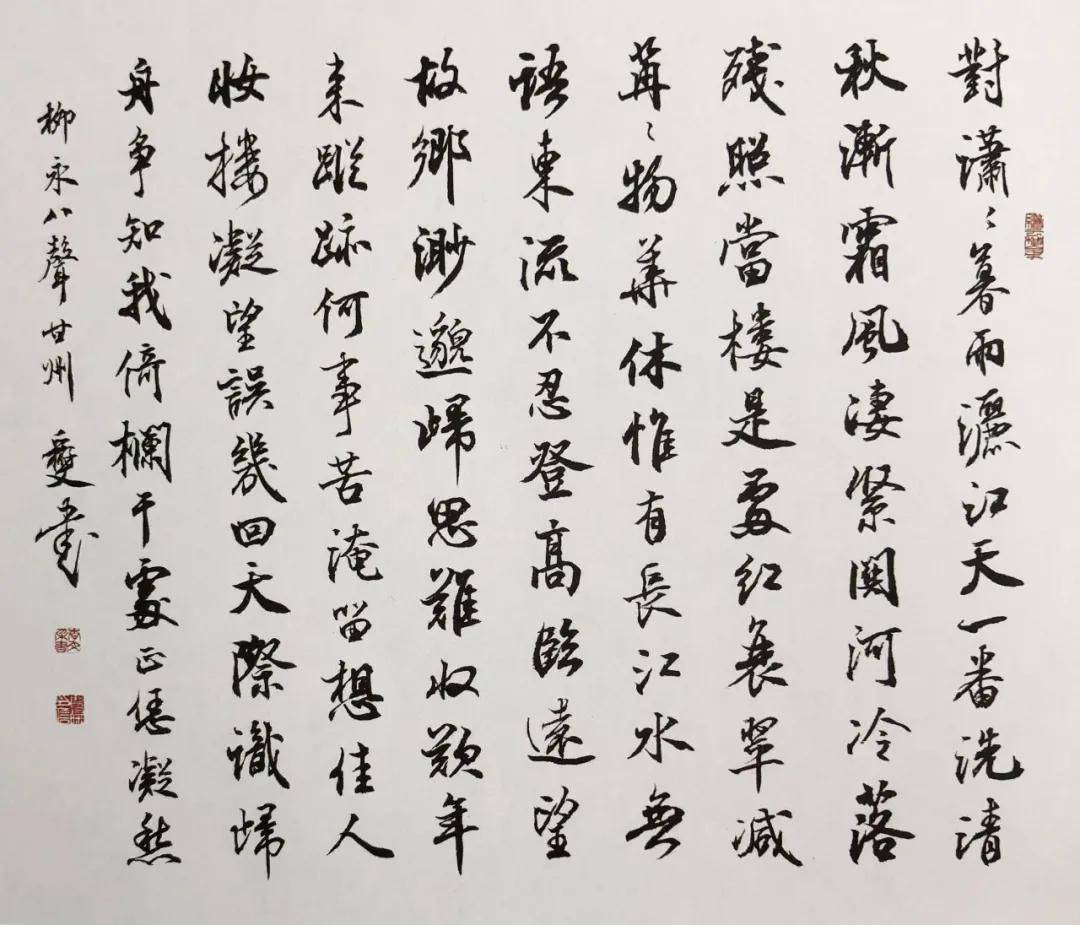 對瀟〻暮雨灑江天一番洗清
秋漸霜風淒緊關河冷落
殘照當樓是處紅衰翠減
苒〻物華休惟有長江水無
語東流不忍登高臨遠望
故鄉渺邈歸思難收歎年
來蹤跡何事苦淹留想佳人
妝樓凝望誤幾回天際識歸
舟爭知我倚欄干處正恁凝愁
柳永八聲甘州